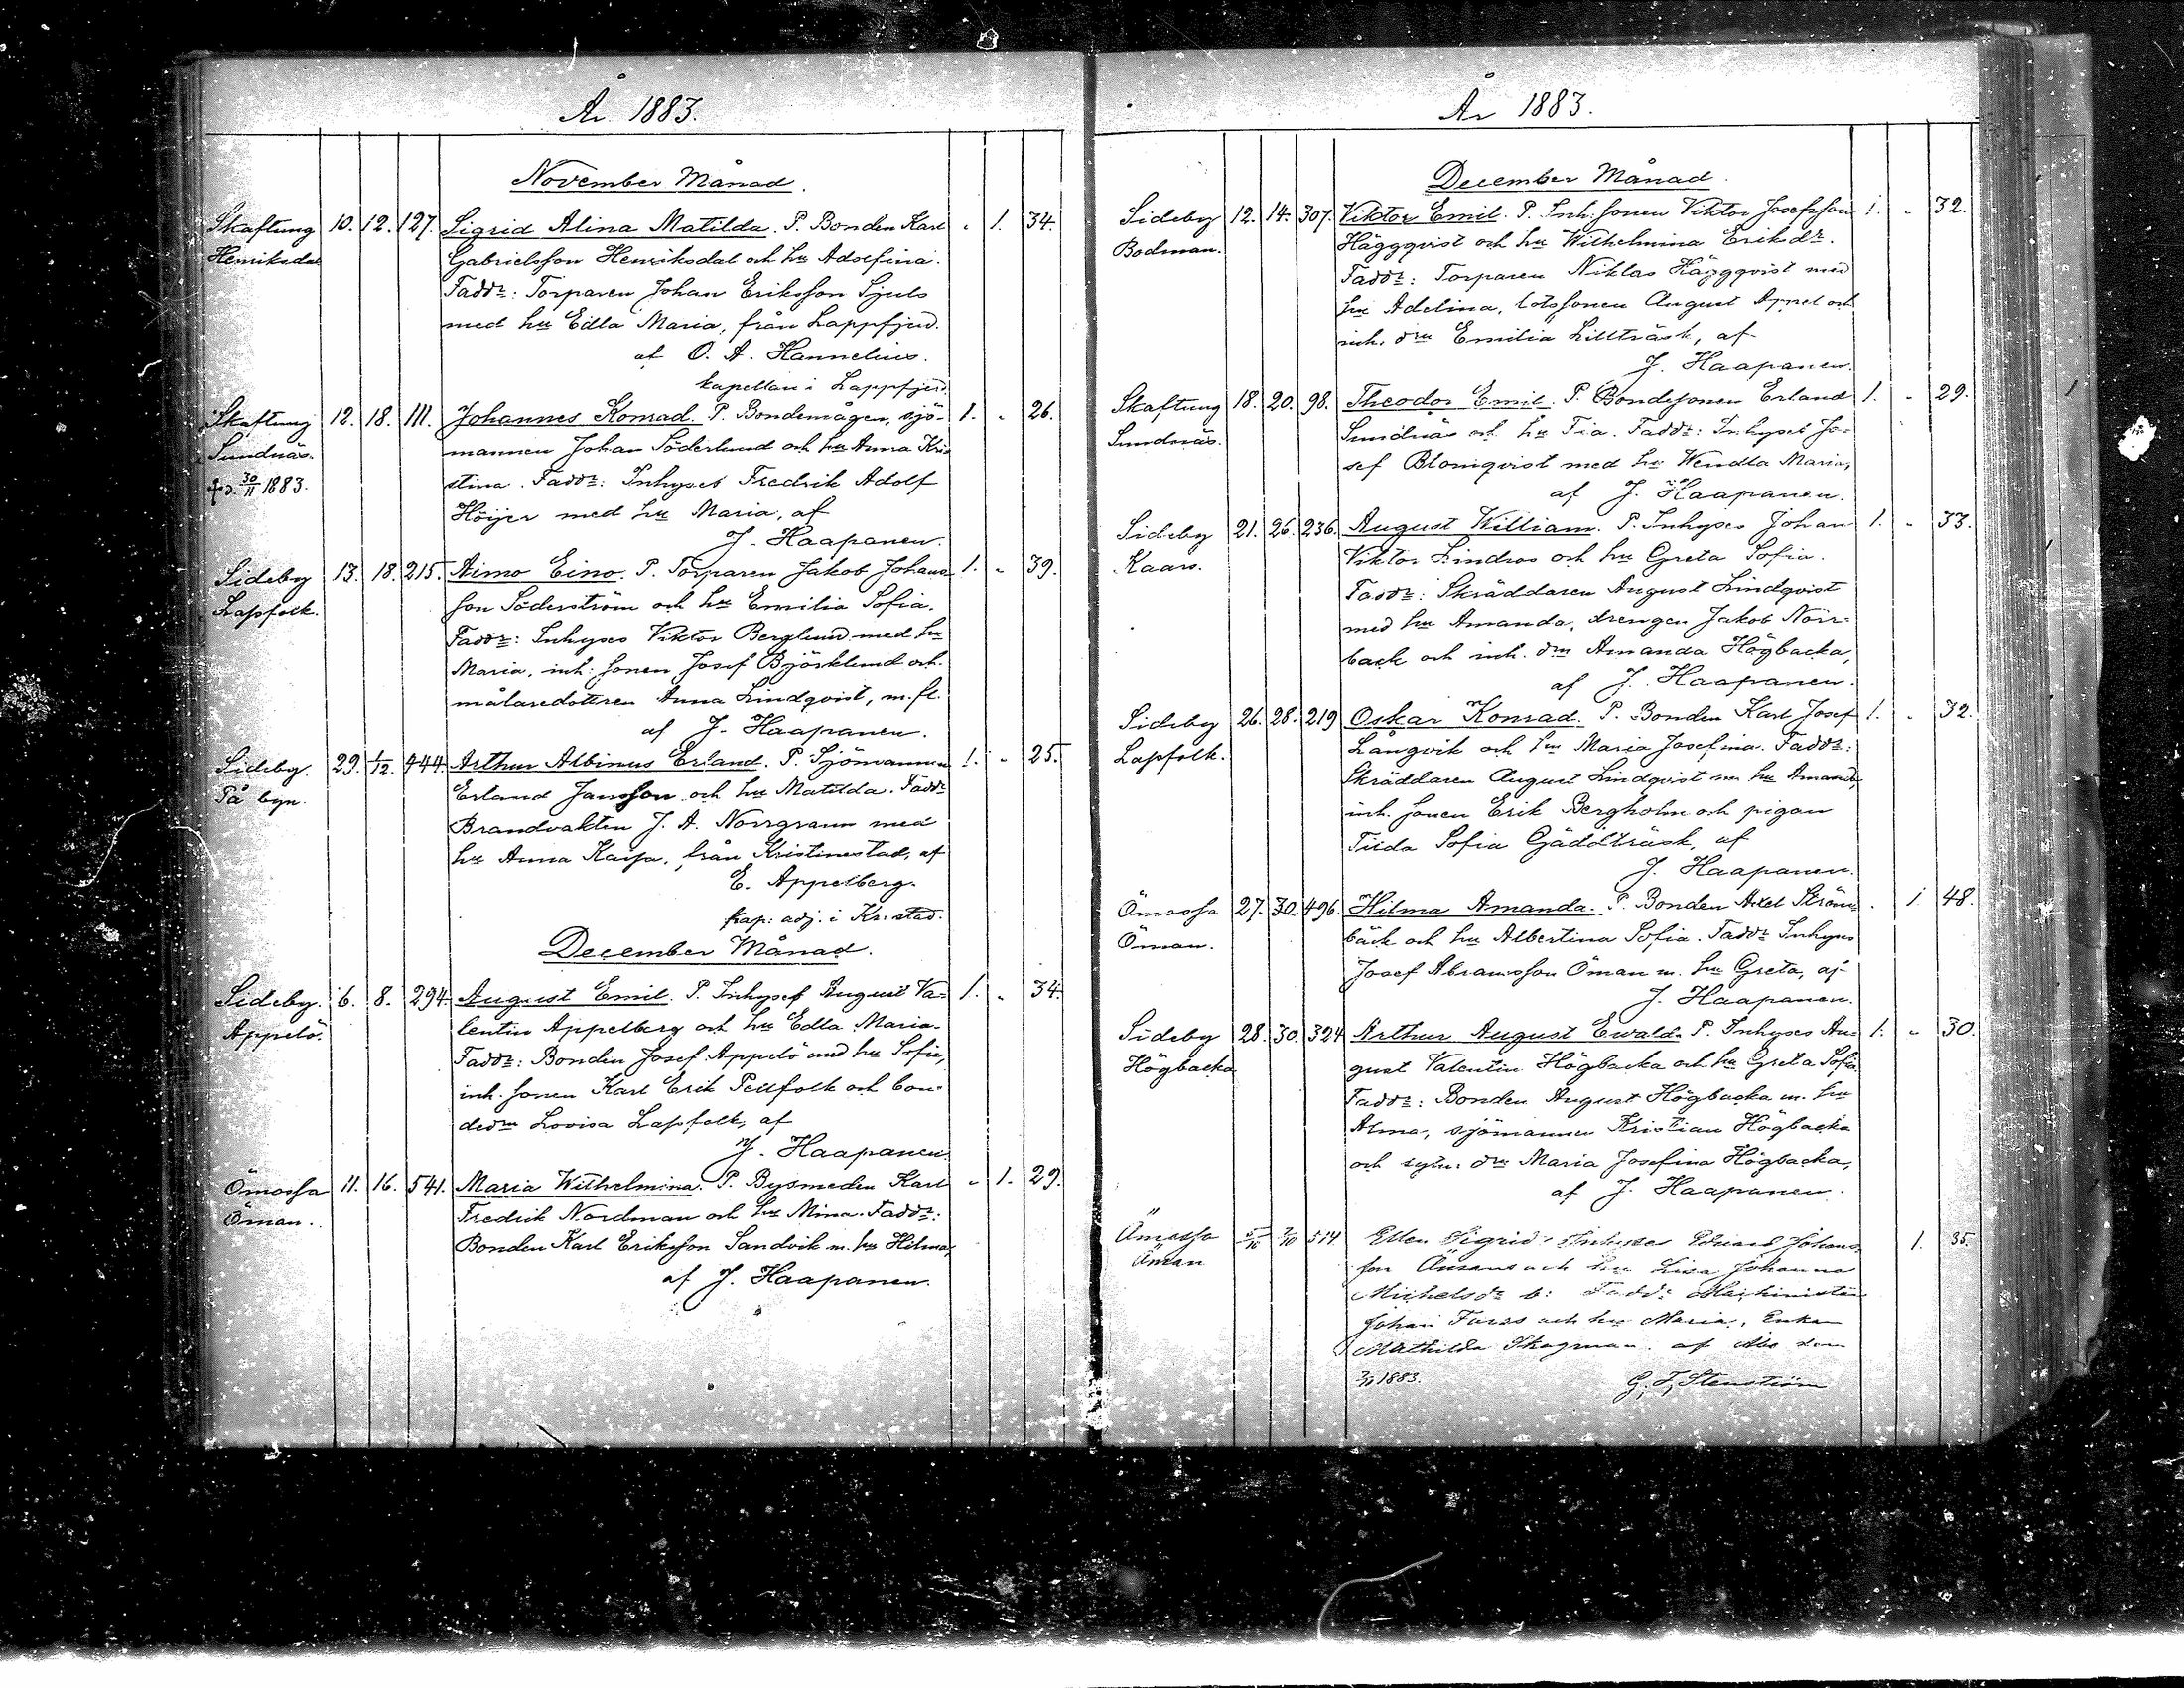 År 1883.
November Månad.
Skaftung 10. 12. 127. Sigrid Alina Matilda. P. Bonden Karl „ 1. 34.
Henriksdal Gabrielsson Henriksdal och hu Adolfina.
Faddr: Torparen Johan Eriksson Sjuls
med hu Edla Maria, från Lappfjerd.
af O. A. Hannelius.
kapellan i Lappfjerd.
Skaftung 12. 18. 111. Johannes Konrad. P. Bondemågen, sjö- 1. „ 26.
Sundnäs. mannen Johan Söderlund och hu Anna Kri-
† d. 30/11 1883. stina. Faddr: Inhyses Fredrik Adolf
Höijer med hu Maria, af
J. Haapanen.
Sideby 13. 18. 215. Aimo Eino. P. Torparen Jakob Johans- 1. „ 39.
Lapfolk. son Söderström och hu Emilia Sofia.
Faddr: Inhyses Viktor Berglund med hu
Maria, inh: sonen Josef Björklund och
målaredottren Anna Lindqvist, m. fl.
af J. Haapanen.
Sideby. 29. 1/12 444. Arthur Albinus Erland. P. Sjömannen 1. „ 25.
På byn. Erland Jansson och hu Matilda. Faddr
Brandvakten J. A. Norrgrann med
hu Anna Kajsa, från Kristinestad, af
E. Appelberg.
kap: adj. i Kr:stad.
December Månad.
Sideby. 6. 8. 294. August Emil. P. Inhyses August Va- 1. „ 34.
Appelö. lentin Appelberg och hu Edla Maria.
Faddr: Bonden Josef Appelö med hu Sofia,
inh. sonen Karl Erik Pellfolk och bon-
dedrn Lovisa Lapfolk, af
J. Haapanen.
Ömossa 11. 16. 541. Maria Wilhelmina. P. Bysmeden Karl „ 1. 29.
Öman. Fredrik Nordman och hu Mina. Faddr:
Bonden Karl Eriksson Sandvik m. hu Hilma,
af J. Haapanen.
År 1883.
December Månad.
Sideby 12. 14. 307. Viktor Emil. P. Inh: sonen Viktor Josefsson 1. „ 32.
Bodman. Häggqvist och hu Wilhelmina Eriksdr.
Faddr: Torparen Niklas Häggqvist med
hu Adelina, lotssonen August Appel och
inh. drn Emilia Lillträsk, af
J. Haapanen.
Skaftung 18. 20. 98. Theodor Emil. P. Bondesonen Erland 1. „ 29.
Sundnäs. Sundnäs och hu Fia. Faddr: Inhyses Jo-
sef Blomqvist med hu Wendla Maria,
af J. Haapanen.
Sideby 21. 26. 236. August William. P. Inhyses Johan 1. „ 33.
Kaars. Viktor Lindros och hu Greta Sofia.
Faddr: Skräddaren August Lindqvist
med hu Amanda, drengen Jakob Norr-
back och inh. drn Amanda Högbacka,
af J. Haapanen.
Sideby 26. 28. 219 Oskar Konrad. P. Bonden Karl Josef 1. „ 32.
Lapfolk. Långvik och hu Maria Josefina. Faddr:
Skräddaren August Lindqvist m hu Amanda,
inh. sonen Erik Bergholm och pigan
Tilda Sofia Gäddträsk, af
J. Haapanen.
Ömossa 27. 30. 496. Hilma Amanda. P. Bonden Axel Ström- . 1. 48.
Öman. bäck och hu Albertina Sofia. Faddr Inhyses
Josef Abramsson Öman m. hu Greta, af
J. Haapanen.
Sideby 28. 30. 324 Arthur August Ewald. P. Inhyses Au- 1. „ 30.
Högbacka gust Valentin Högbacka och hu Greta Sofia
Faddr: Bonden August Högbacka m. hu
Alma, sjömannen Kristian Högbacka
och sytn: drn Maria Josefina Högbacka,
af J. Haapanen.
Ömossa 514 Ellen Sigrid. Inhyses Eduard Johans- 1. 35.
Öman son Öman och hu Lisa Johanna
Michelsdr Faddr Maskinisten
Johan Forss och hu Maria, Enkan
Mathilda Skogman. af Åbo
1883. G. F. Stenström